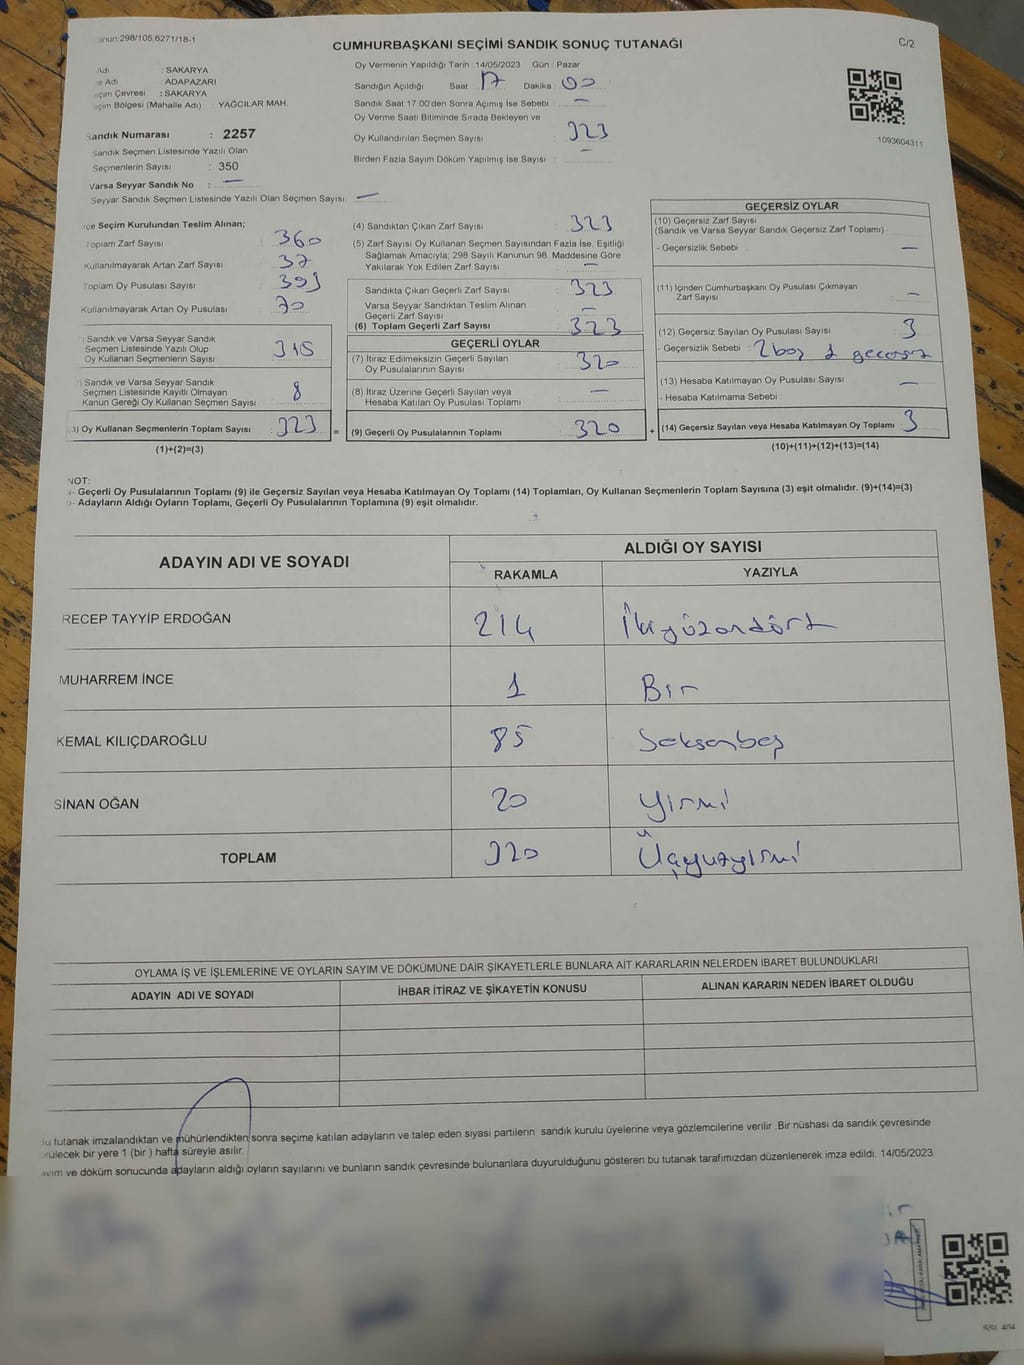 anun:298/105,6271/18-1
C/2
CUMHURBAŞKANI SEÇİMİ SANDIK SONUÇ TUTANAĞI
Adı : SAKARYA
e Adı : ADAPAZARI
eçim Çevresi : SAKARYA
eçim Bölgesi (Mahalle Adı) : YAĞCILAR MAH.
Sandık Numarası : 2257
Sandık Seçmen Listesinde Yazılı Olan
Seçmenlerin Sayısı : 350
Varsa Seyyar Sandık No : —
Seyyar Sandık Seçmen Listesinde Yazılı Olan Seçmen Sayısı: —
Oy Vermenin Yapıldığı Tarih : 14/05/2023 Gün : Pazar
Sandığın Açıldığı Saat 17 Dakika : 00
Sandık Saat 17:00'den Sonra Açımış İse Sebebi : —
Oy Verme Saati Bitiminde Sırada Bekleyen ve
Oy Kullandırılan Seçmen Sayısı : 323
Birden Fazla Sayım Döküm Yapılmış İse Sayısı : —
1093604311
çe Seçim Kurulundan Teslim Alınan;
Toplam Zarf Sayısı : 360
Kullanılmayarak Artan Zarf Sayısı : 37
Toplam Oy Pusulası Sayısı : 393
Kullanılmayarak Artan Oy Pusulası : 70
) Sandık ve Varsa Seyyar Sandık
Seçmen Listesinde Yazılı Olup
Oy Kullanan Seçmenlerin Sayısı : 315
) Sandık ve Varsa Seyyar Sandık
Seçmen Listesinde Kayıtlı Olmayan
Kanun Gereği Oy Kullanan Seçmen Sayısı : 8
3) Oy Kullanan Seçmenlerin Toplam Sayısı : 323 =
(1)+(2)=(3)
(4) Sandıktan Çıkan Zarf Sayısı : 323
(5) Zarf Sayısı Oy Kullanan Seçmen Sayısından Fazla İse, Eşitliği
Sağlamak Amacıyla; 298 Sayılı Kanunun 98. Maddesine Göre
Yakılarak Yok Edilen Zarf Sayısı : —
Sandıkta Çıkan Geçerli Zarf Sayısı : 323
Varsa Seyyar Sandıktan Teslim Alınan
Geçerli Zarf Sayısı : —
(6) Toplam Geçerli Zarf Sayısı : 323
GEÇERLİ OYLAR
(7) İtiraz Edilmeksizin Geçerli Sayılan
Oy Pusulalarının Sayısı : 320
(8) İtiraz Üzerine Geçerli Sayılan veya
Hesaba Katılan Oy Pusulası Toplamı : —
(9) Geçerli Oy Pusulalarının Toplamı : 320 +
GEÇERSİZ OYLAR
(10) Geçersiz Zarf Sayısı
(Sandık ve Varsa Seyyar Sandık Geçersiz Zarf Toplamı) :
- Geçersizlik Sebebi : —
(11) İçinden Cumhurbaşkanı Oy Pusulası Çıkmayan
Zarf Sayısı : —
(12) Geçersiz Sayılan Oy Pusulası Sayısı : 3
- Geçersizlik Sebebi : 2 boş 1 geçersiz
(13) Hesaba Katılmayan Oy Pusulası Sayısı : —
- Hesaba Katılmama Sebebi :
(14) Geçersiz Sayılan veya Hesaba Katılmayan Oy Toplamı : 3
(10)+(11)+(12)+(13)=(14)
NOT:
- Geçerli Oy Pusulalarının Toplamı (9) ile Geçersiz Sayılan veya Hesaba Katılmayan Oy Toplamı (14) Toplamları, Oy Kullanan Seçmenlerin Toplam Sayısına (3) eşit olmalıdır. (9)+(14)=(3)
- Adayların Aldığı Oyların Toplamı, Geçerli Oy Pusulalarının Toplamına (9) eşit olmalıdır.
ADAYIN ADI VE SOYADI
ALDIĞI OY SAYISI
RAKAMLA YAZIYLA
RECEP TAYYİP ERDOĞAN 214 İkiyüzondört
MUHARREM İNCE 1 Bir
KEMAL KILIÇDAROĞLU 85 Seksenbeş
SİNAN OĞAN 20 Yirmi
TOPLAM 320 Üçyüzyirmi
OYLAMA İŞ VE İŞLEMLERİNE VE OYLARIN SAYIM VE DÖKÜMÜNE DAİR ŞİKAYETLERLE BUNLARA AİT KARARLARIN NELERDEN İBARET BULUNDUKLARI
ADAYIN ADI VE SOYADI İHBAR İTİRAZ VE ŞİKAYETİN KONUSU ALINAN KARARIN NEDEN İBARET OLDUĞU
u tutanak imzalandıktan ve mühürlendikten sonra seçime katılan adayların ve talep eden siyasi partilerin sandık kurulu üyelerine veya gözlemcilerine verilir .Bir nüshası da sandık çevresinde
rülecek bir yere 1 (bir ) hafta süreyle asılır.
ayım ve döküm sonucunda adayların aldığı oyların sayılarını ve bunların sandık çevresinde bulunanlara duyurulduğunu gösteren bu tutanak tarafımızdan düzenlenerek imza edildi. 14/05/2023